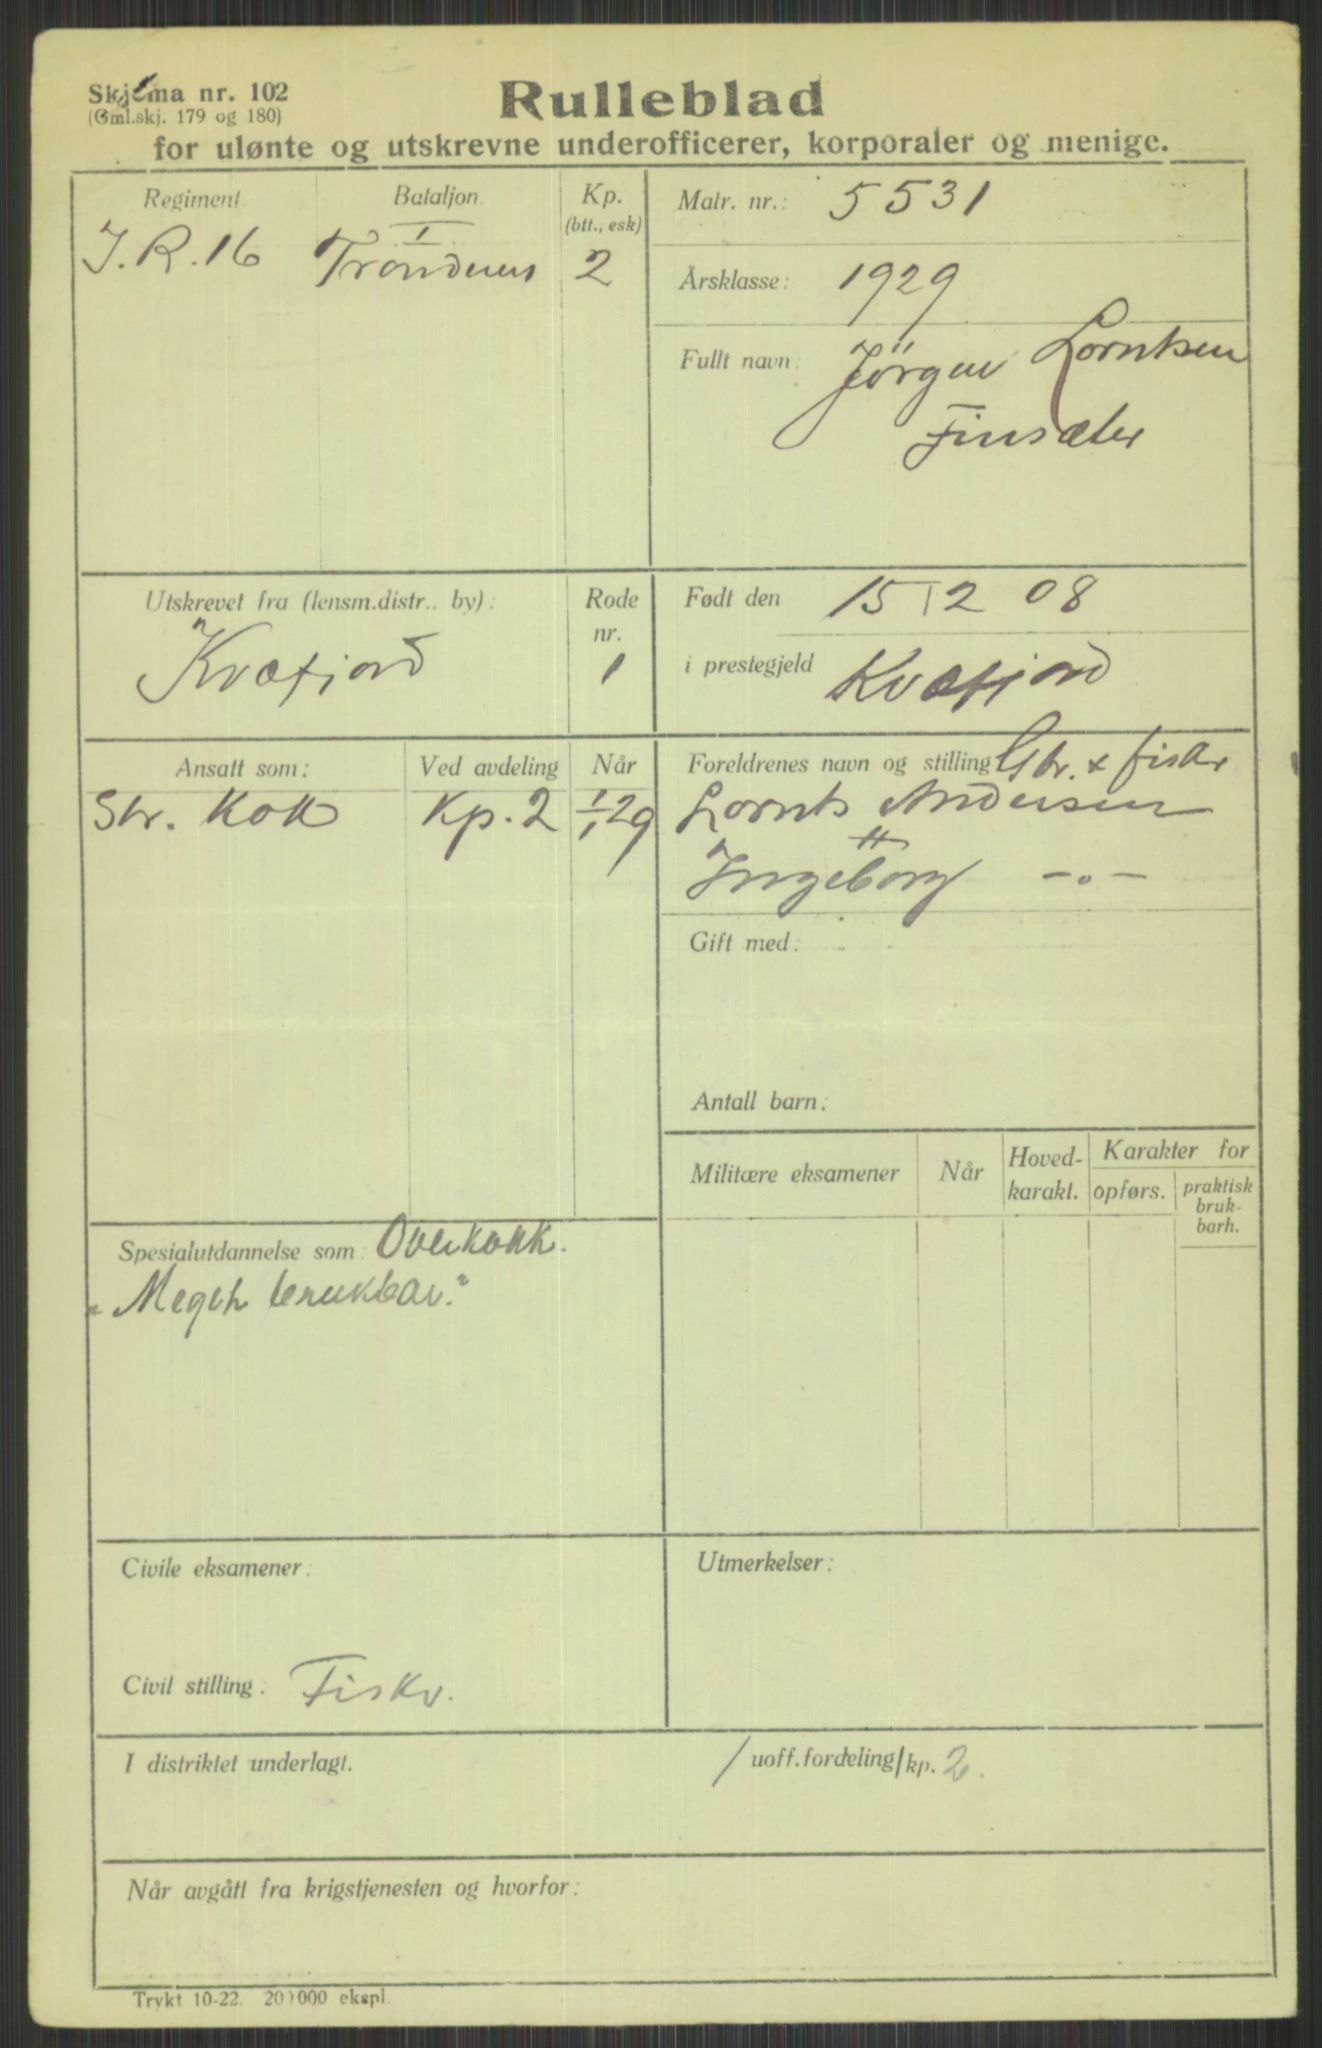 Skjema nr. 102
(Gml.skj. 179 og 180)
Rulleblad
for ulønte og utskrevne underofficerer, korporaler og menige.
Regiment Bataljon Kp. (btt., esk)
I.R. 16 I Trondenes 2
Matr. nr.: 5531
Årsklasse: 1929
Fullt navn: Jörgen Lorntsen
Finsæter
Utskrevet fra (lensm.distr.. by): Rode nr.
Kvæfjord 1
Født den 15/12 08
i prestegjeld Kvæfjord
Ansatt som: Ved avdeling Når
Str. Kokk Kp. 2 1/1 29
Foreldrenes navn og stilling Gbr. & fisker
Lornts Andersen
Ingeborg —„—
Gift med:
Antall barn:
Militære eksamener Når Hoved-karakt. Karakter for
opførs. praktisk bruk-barh.
Spesialutdannelse som: Overkokk.
"Meget brukbar."
Civile eksamener:
Utmerkelser:
Civil stilling: Fisker.
I distriktet underlagt.
/uoff.fordeling/kp. 2.
Når avgått fra krigstjenesten og hvorfor:
Trykt 10-22. 20 000 ekspl.